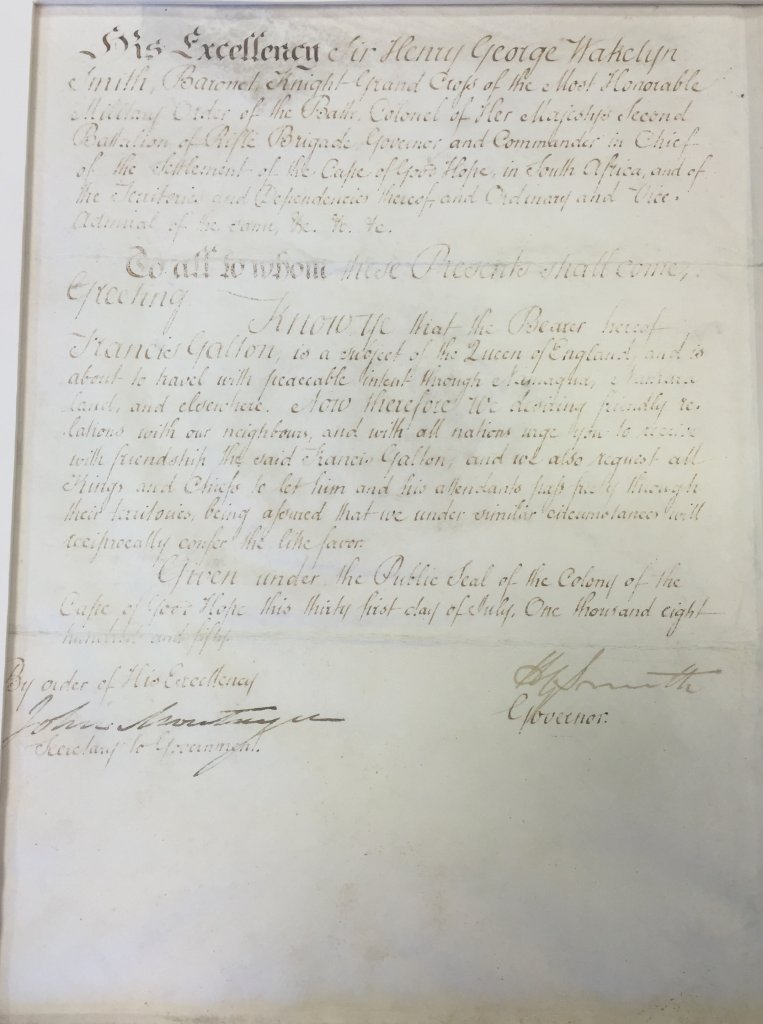 His Excellency Sir Henry George Wakelyn
Smith, Baronet, Knight Grand Cross of the Most Honorable
Military Order of the Bath, Colonel of Her Majestys Second
Battalion of Rifle Brigade, Governor and Commander in Chief
of the Settlement of the Cape of Good Hope, in South Africa, and of
the Territories and Dependencies thereof, and Ordinary and Vice-
Admiral of the same, &c. &c. &c.
To all to whom these Presents shall come,
Greeting
Know ye that the Bearer hereof
Francis Galton, is a subject of the Queen of England, and is
about to travel with peaceable intent through Namaqua,
land, and elsewhere. Now therefore We desiring friendly re-
lations with our neighbours, and with all nations urge you to receive
with friendship the said Francis Galton, and we also request all
Kings and Chiefs to let him and his attendants pass freely through
their territories, being assured that we under similar circumstances will
reciprocally confer the like favor.
Given under the Public Seal of the Colony of the
Cape of Good Hope this thirty first day of July, One thousand eight
hundred and fifty.
By order of His Excellency
John Montagu
Secretary to Government.
H G Smith
Governor.